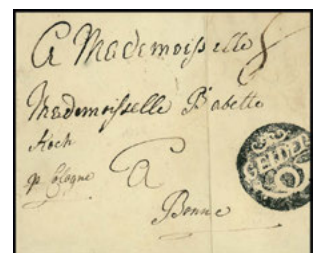 A Mademoiselle
Mademoiselle Babette
Koch
p. Cologne
A
Bonne
GELDER